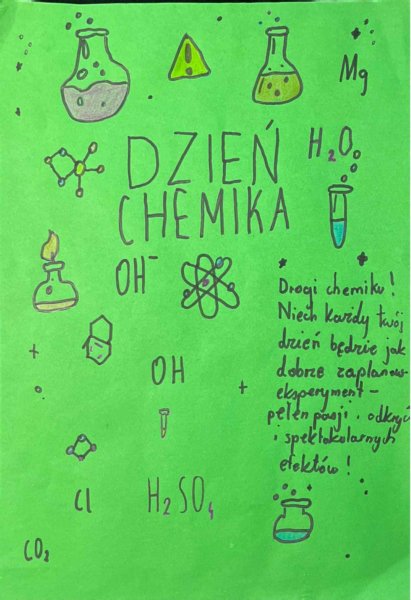 Mg
H₂O
DZIEŃ
CHEMIKA
OH⁻
Drogi chemiku!
Niech każdy twój
dzień będzie jak
dobrze zaplanow
eksperyment –
pełen pasji, odkryć
i spektokolarnych
efektów!
OH
Cl
H₂SO₄
CO₂